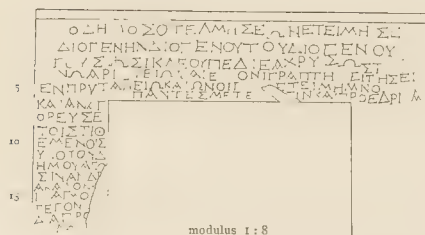 ΟΔΗ ΟΣΟΤΕΛΜΗΣΣΕΩΝΕΤΕΙΜΗΣΕ
ΔΙΟΓΕΝΗΝΔΙΟΓΕΝΟΥΤΟΥΔΙΟΓΕΝΟΥ
ΣΩΣΙΚΛΕΟΥΠΕΔΙΕΑΧΡΥΣΩΣΤ
ΝΩΑΡΙ ΤΕΙΩΚΑΙΕ ΟΝΙΓΡΑΠΤΗ ΕΙΤΗΣΕΙ
5 ΕΝΠΡΥΤΑ ΕΙΩΚΑΙΩΝΟΙ ΤΕΤΕΙΜΗΜΝΟ
ΠΑΝΤΕΣΜΕΤΕ ΚΑ ΡΟΕΔΡΙΑ
ΚΑΙΑΝΑΓ
ΟΡΕΥΣΕ
ΤΟΙΣΤΙΘ
10 ΕΜΕΝΟΙΣ
Υ ΟΤΟΥΔ
ΗΜΟΥΑΓΩ
ΣΙΝΑΙΔΡ
15 ΓΕΓΟΝ
ΔΑΠΡΟ
modulus 1:8